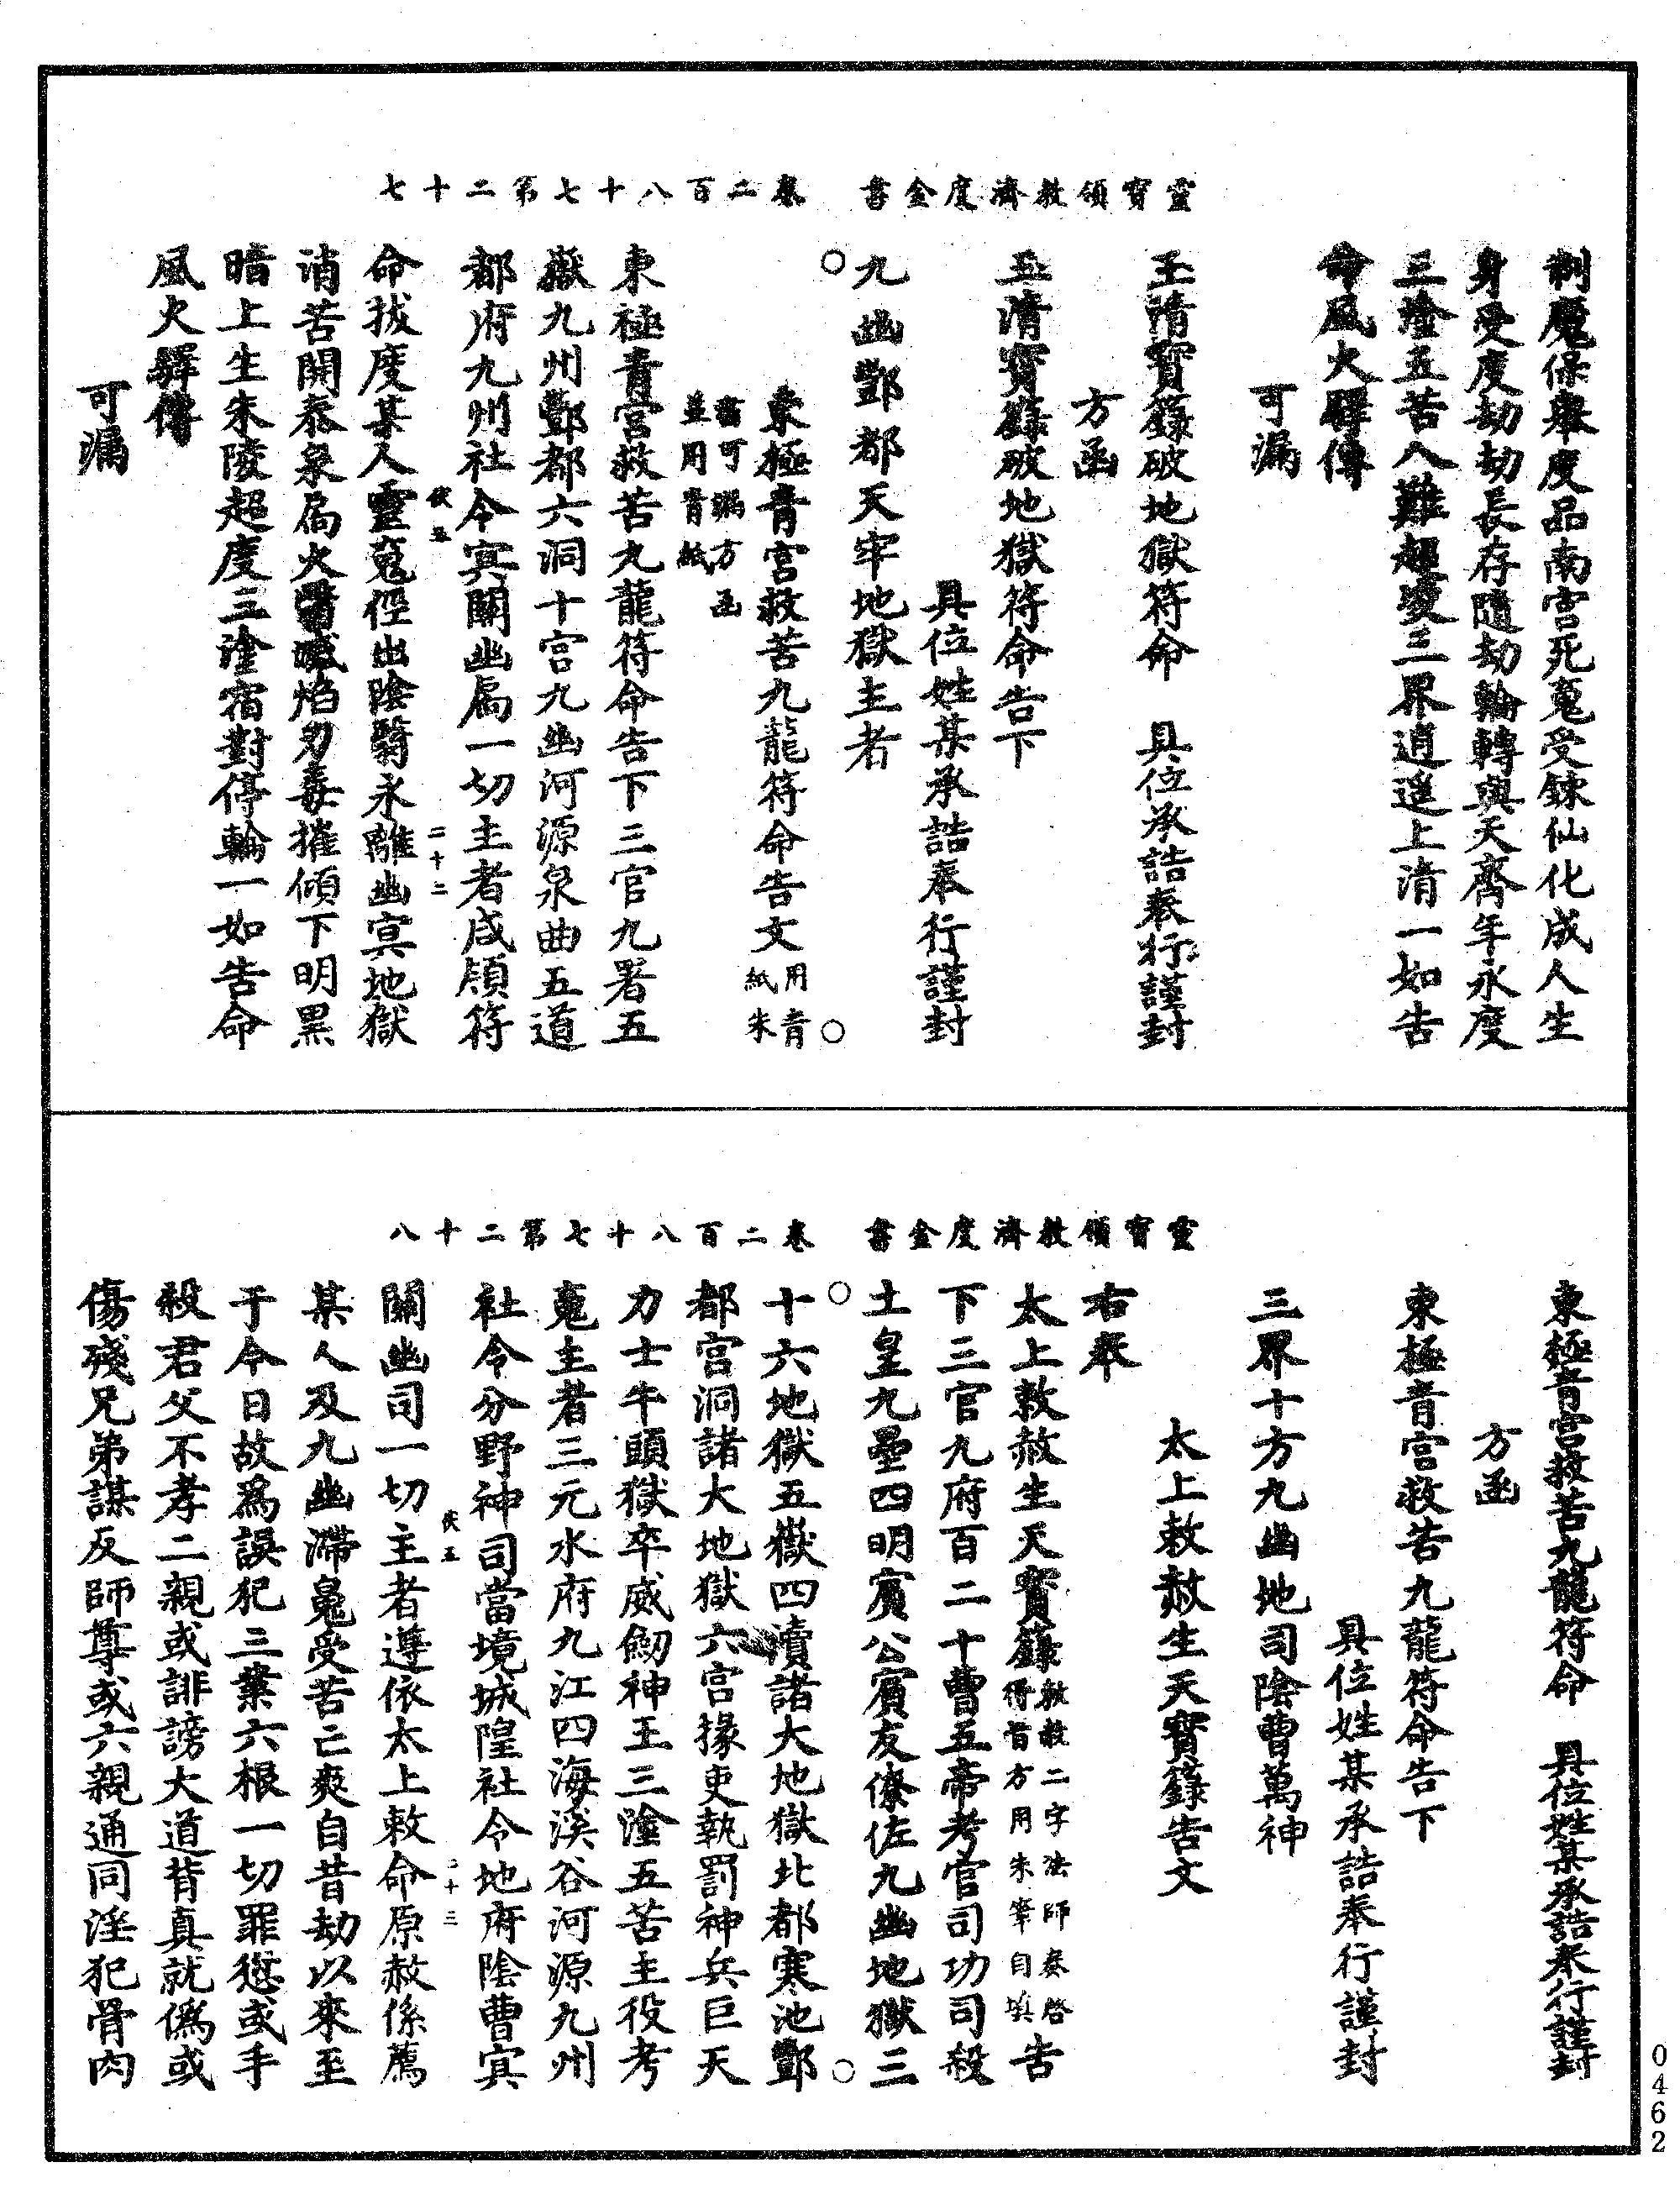 靈寶領教濟度金書　卷二百八十七第二十七
制魔保舉度品南宮死䰟受鍊仙化成人生
身受度劫劫長存隨劫輪轉與天齊年永度
三塗五苦八難超凌三界逍遥上清一如告
命風火驛傳
可漏
玉清寶籙破地獄符命　具位承誥奉行謹封
方函
玉清寶籙破地獄符命告下
具位姓某承誥奉行謹封
九幽酆都天牢地獄主者
東極青宮救苦九龍符命告文用青紙朱
書可漏方函
並用青紙
東極青宮救苦九龍符命告下三官九署五
嶽九州酆都六洞十宮九幽河源泉曲五道
都府九州社令冥關幽扃一切主者咸領符
伕五　二十二
命拔度某人靈䰟俓出陰翳永離幽冥地獄
消苦開泰泉扃火醫滅焰刃毒摧傾下明黑
暗上生朱陵超度三塗宿對停輪一如告命
風火驛傳
可漏
靈寶領教濟度金書　卷二百八十七第二十八
東極青宮救苦九龍符命　具位姓某承誥奉行謹封
方函
東極青宮救苦九龍符命告下
具位姓某承誥奉行謹封
三界十方九幽地司陰曹萬神
太上敕赦生天寶籙告文
右奉
太上敕赦生天寶籙敕赦二字法師奏啓
得旨方用朱筆自填告
下三官九府百二十曹五帝考官司功司殺
土皇九壘四明賔公賔友僚佐九幽地獄三
十六地獄五嶽四瀆諸大地獄北都寒池酆
都宮洞諸大地獄六宮掾吏執罰神兵巨天
力士牛頭獄卒威劒神王三塗五苦主役考
䰟主者三元水府九江四海溪谷河源九州
社令分野神司當境城隍社令地府陰曹冥
關幽司一切主者遵依太上敕命原赦係薦
伕五　二十三
某人及九幽滯䰟受苦亡爽自昔劫以來至
于今日故爲誤犯三業六根一切罪愆或手
殺君父不孝二親或誹謗大道背真就僞或
傷殘兄弟謀反師尊或六親通同淫犯骨肉
0462